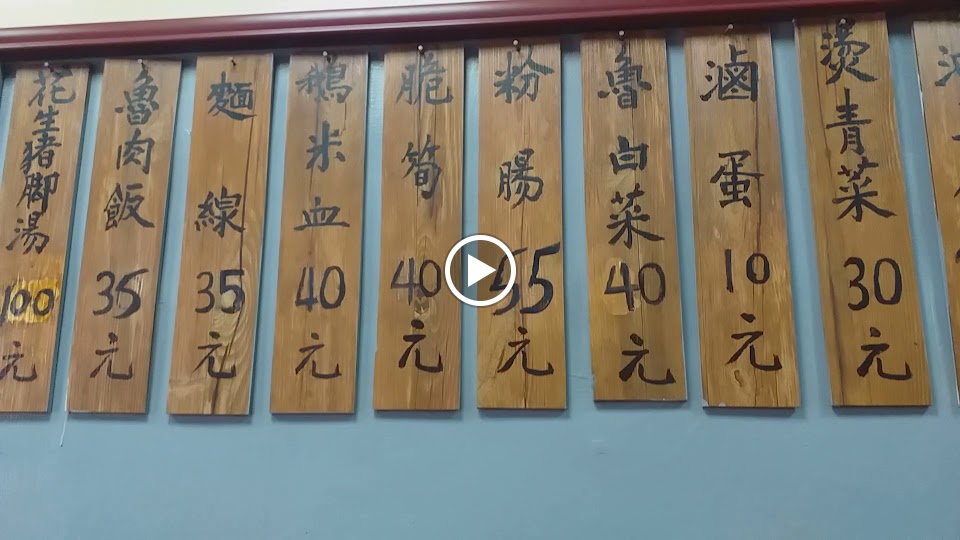 花生豬腳湯 100元
魯肉飯 35元
麵線 35元
鵝米血 40元
脆筍 40元
粉腸 55元
魯白菜 40元
滷蛋 10元
燙青菜 30元